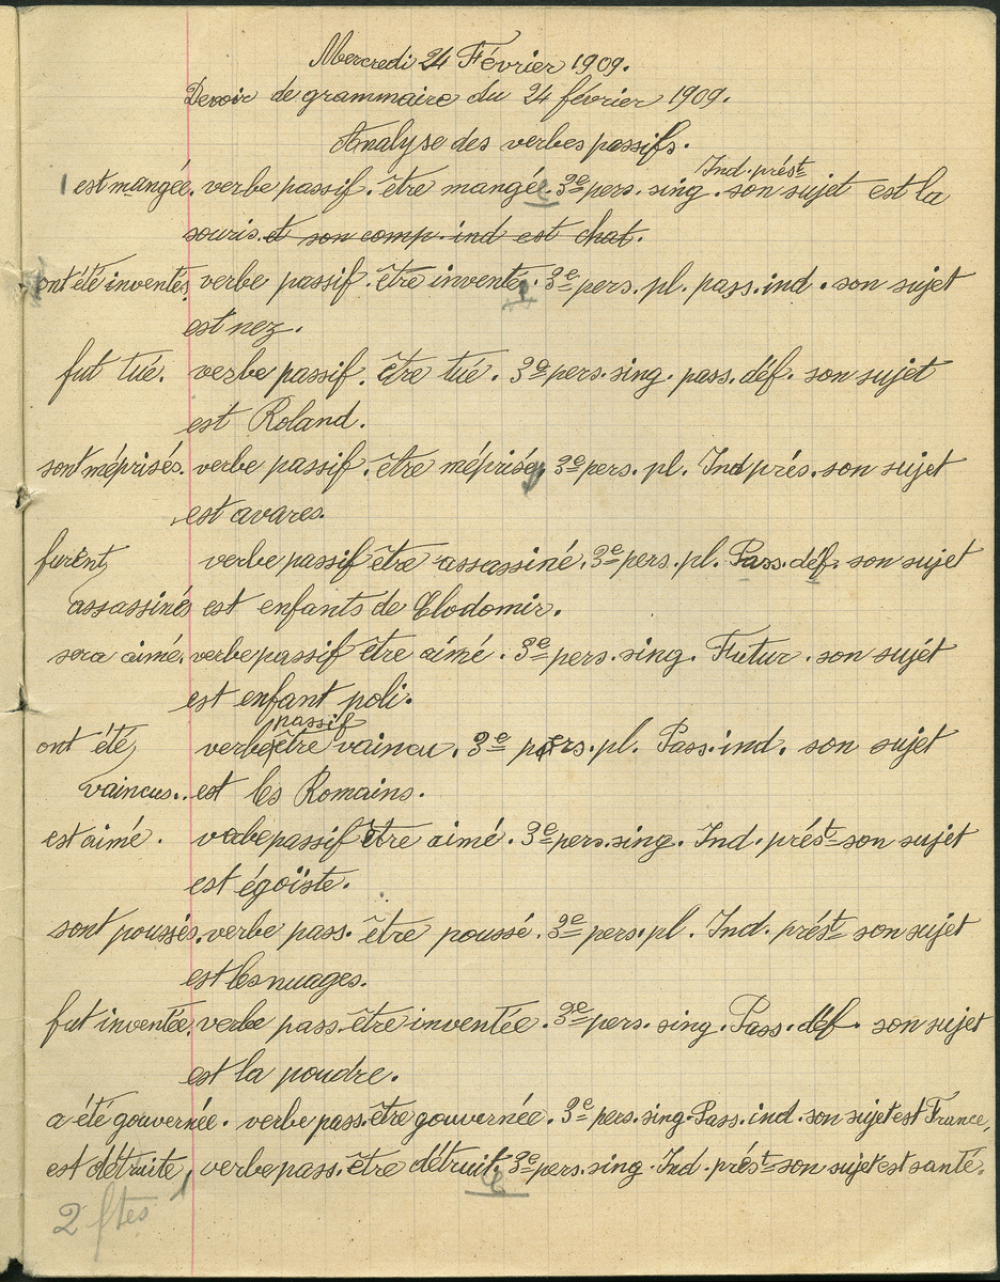 Mercredi 24 Février 1909.
Devoir de grammaire du 24 février 1909.
Analyse des verbes passifs.
Ind. prést
est mangée. verbe passif. être mangée. 3e pers. sing. son sujet est la
souris. et son comp. ind est chat.
ont été inventés, verbe passif. être inventé. 3e pers. pl. pass. ind. son sujet
est nez.
fut tué. verbe passif. être tué. 3e pers. sing. pass. déf. son sujet
est Roland.
sont méprisés. verbe passif. être méprisé, 3e pers. pl. Ind prés. son sujet
est avares.
furent verbe passif être assassiné. 3e pers. pl. Pass. déf. son sujet
assassinés est enfants de Clodomir.
sera aimé. verbe passif être aimé. 3e pers. sing. Futur. son sujet
est enfant poli.
passif
ont été verbe être vaincu. 3e pers. pl. Pass. ind. son sujet
vaincus. est les Romains.
est aimé. verbe passif être aimé. 3e pers. sing. Ind. prést son sujet
est égoïste.
sont poussés. verbe pass. être poussé. 3e pers. pl. Ind. prést son sujet
est les nuages.
fut inventée, verbe pass. être inventée. 3e pers. sing. Pass. déf. son sujet
est la poudre.
a été gouvernée. verbe pass. être gouvernée. 3e pers. sing. Pass. ind. son sujet est France,
est détruite, verbe pass. être détruit. 3e pers. sing. Ind. prést son sujet est santé.
2 ftes